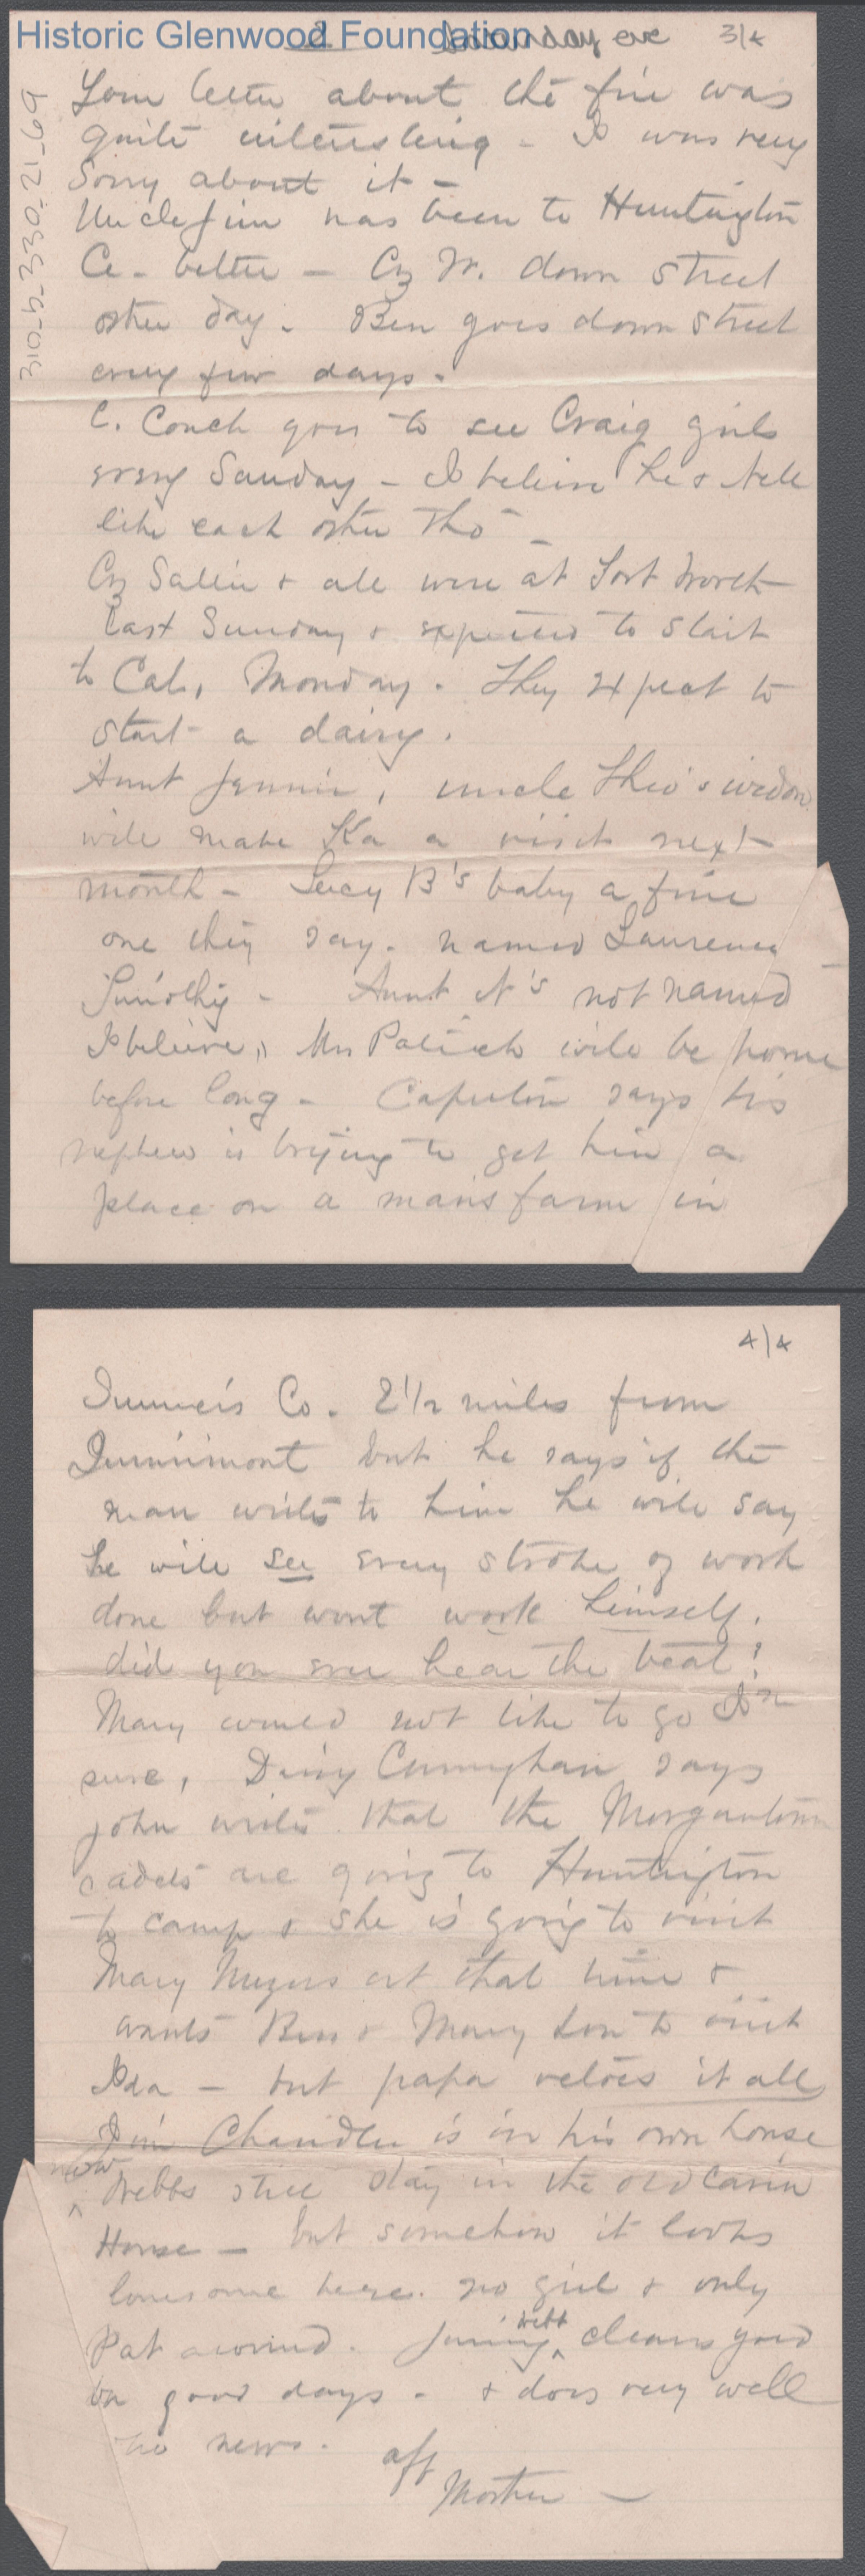 Historic Glenwood Foundation
2 Sunday eve 3/4
310-5-330-21-69
Your letter about the fire was
quite interesting - I was very
sorry about it -
Uncle Jim has been to Huntington
Ce - better - Cz W. down street
other day. Ben goes down street
every few days.
C. Couch goes to see Craig girls
every Sunday - I believe he & Nell
like each other tho -
Cz Sallie & all were at Fort Worth
last Sunday & expected to start
to Cal, Monday. They expect to
start a dairy.
Aunt Jennie, uncle Theo's widow
will make Ka a visit next
month - Lucy B's baby a fine
one they say. named Laurence
Timothy - Aunt N's not named
I believe, Mrs Patrick will be home
before long - Caperton says his
nephew is trying to get him a
place on a man's farm in
4/4
Summers Co. 2 1/2 miles from
but he says if the
man writes to him he will say
he will see every stroke of work
done but wont work himself.
did you ever hear the beat!
Mary would not like to go I'm
sure, Cunnyham says
John writes that the Morgantown
cadets are going to Huntington
to camp & she is going to visit
Mary at that time &
wants Bess & Mary Lou to visit
Ida - but papa vetoes it all
Jim Chandler is in his own house
now
Webbs still stay in the old
House - but somehow it looks
lonesome here. no girl & only
Pat around. Jimmy Webb cleans yard
on good days - & does very well
no news. aff
Mother -